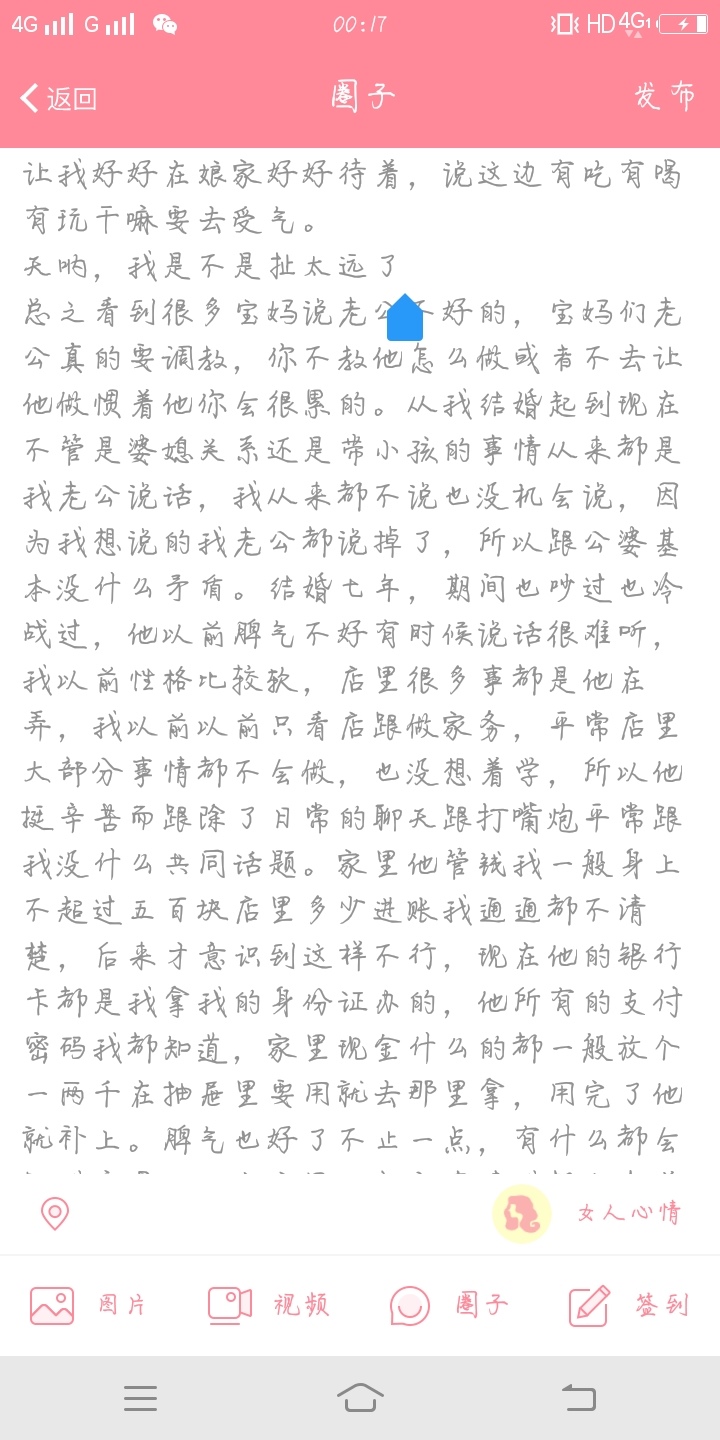 4G G 00:17 HD 4G1
返回 圈子 发布
让我好好在娘家好好待着，说这边有吃有喝
有玩干嘛要去受气。
天呐，我是不是扯太远了
总之看到很多宝妈说老公不好的，宝妈们老
公真的要调教，你不教他怎么做或者不去让
他做惯着他你会很累的。从我结婚起到现在
不管是婆媳关系还是带小孩的事情从来都是
我老公说话，我从来都不说也没机会说，因
为我想说的我老公都说掉了，所以跟公婆基
本没什么矛盾。结婚七年，期间也吵过也冷
战过，他以前脾气不好有时候说话很难听，
我以前性格比较软，店里很多事都是他在
弄，我以前以前只看店跟做家务，平常店里
大部分事情都不会做，也没想着学，所以他
挺辛苦而跟除了日常的聊天跟打嘴炮平常跟
我没什么共同话题。家里他管钱我一般身上
不超过五百块店里多少进账我通通都不清
楚，后来才意识到这样不行，现在他的银行
卡都是我拿我的身份证办的，他所有的支付
密码我都知道，家里现金什么的都一般放个
一两千在抽屉里要用就去那里拿，用完了他
就补上。脾气也好了不止一点，有什么都会
女人心情
图片 视频 圈子 签到